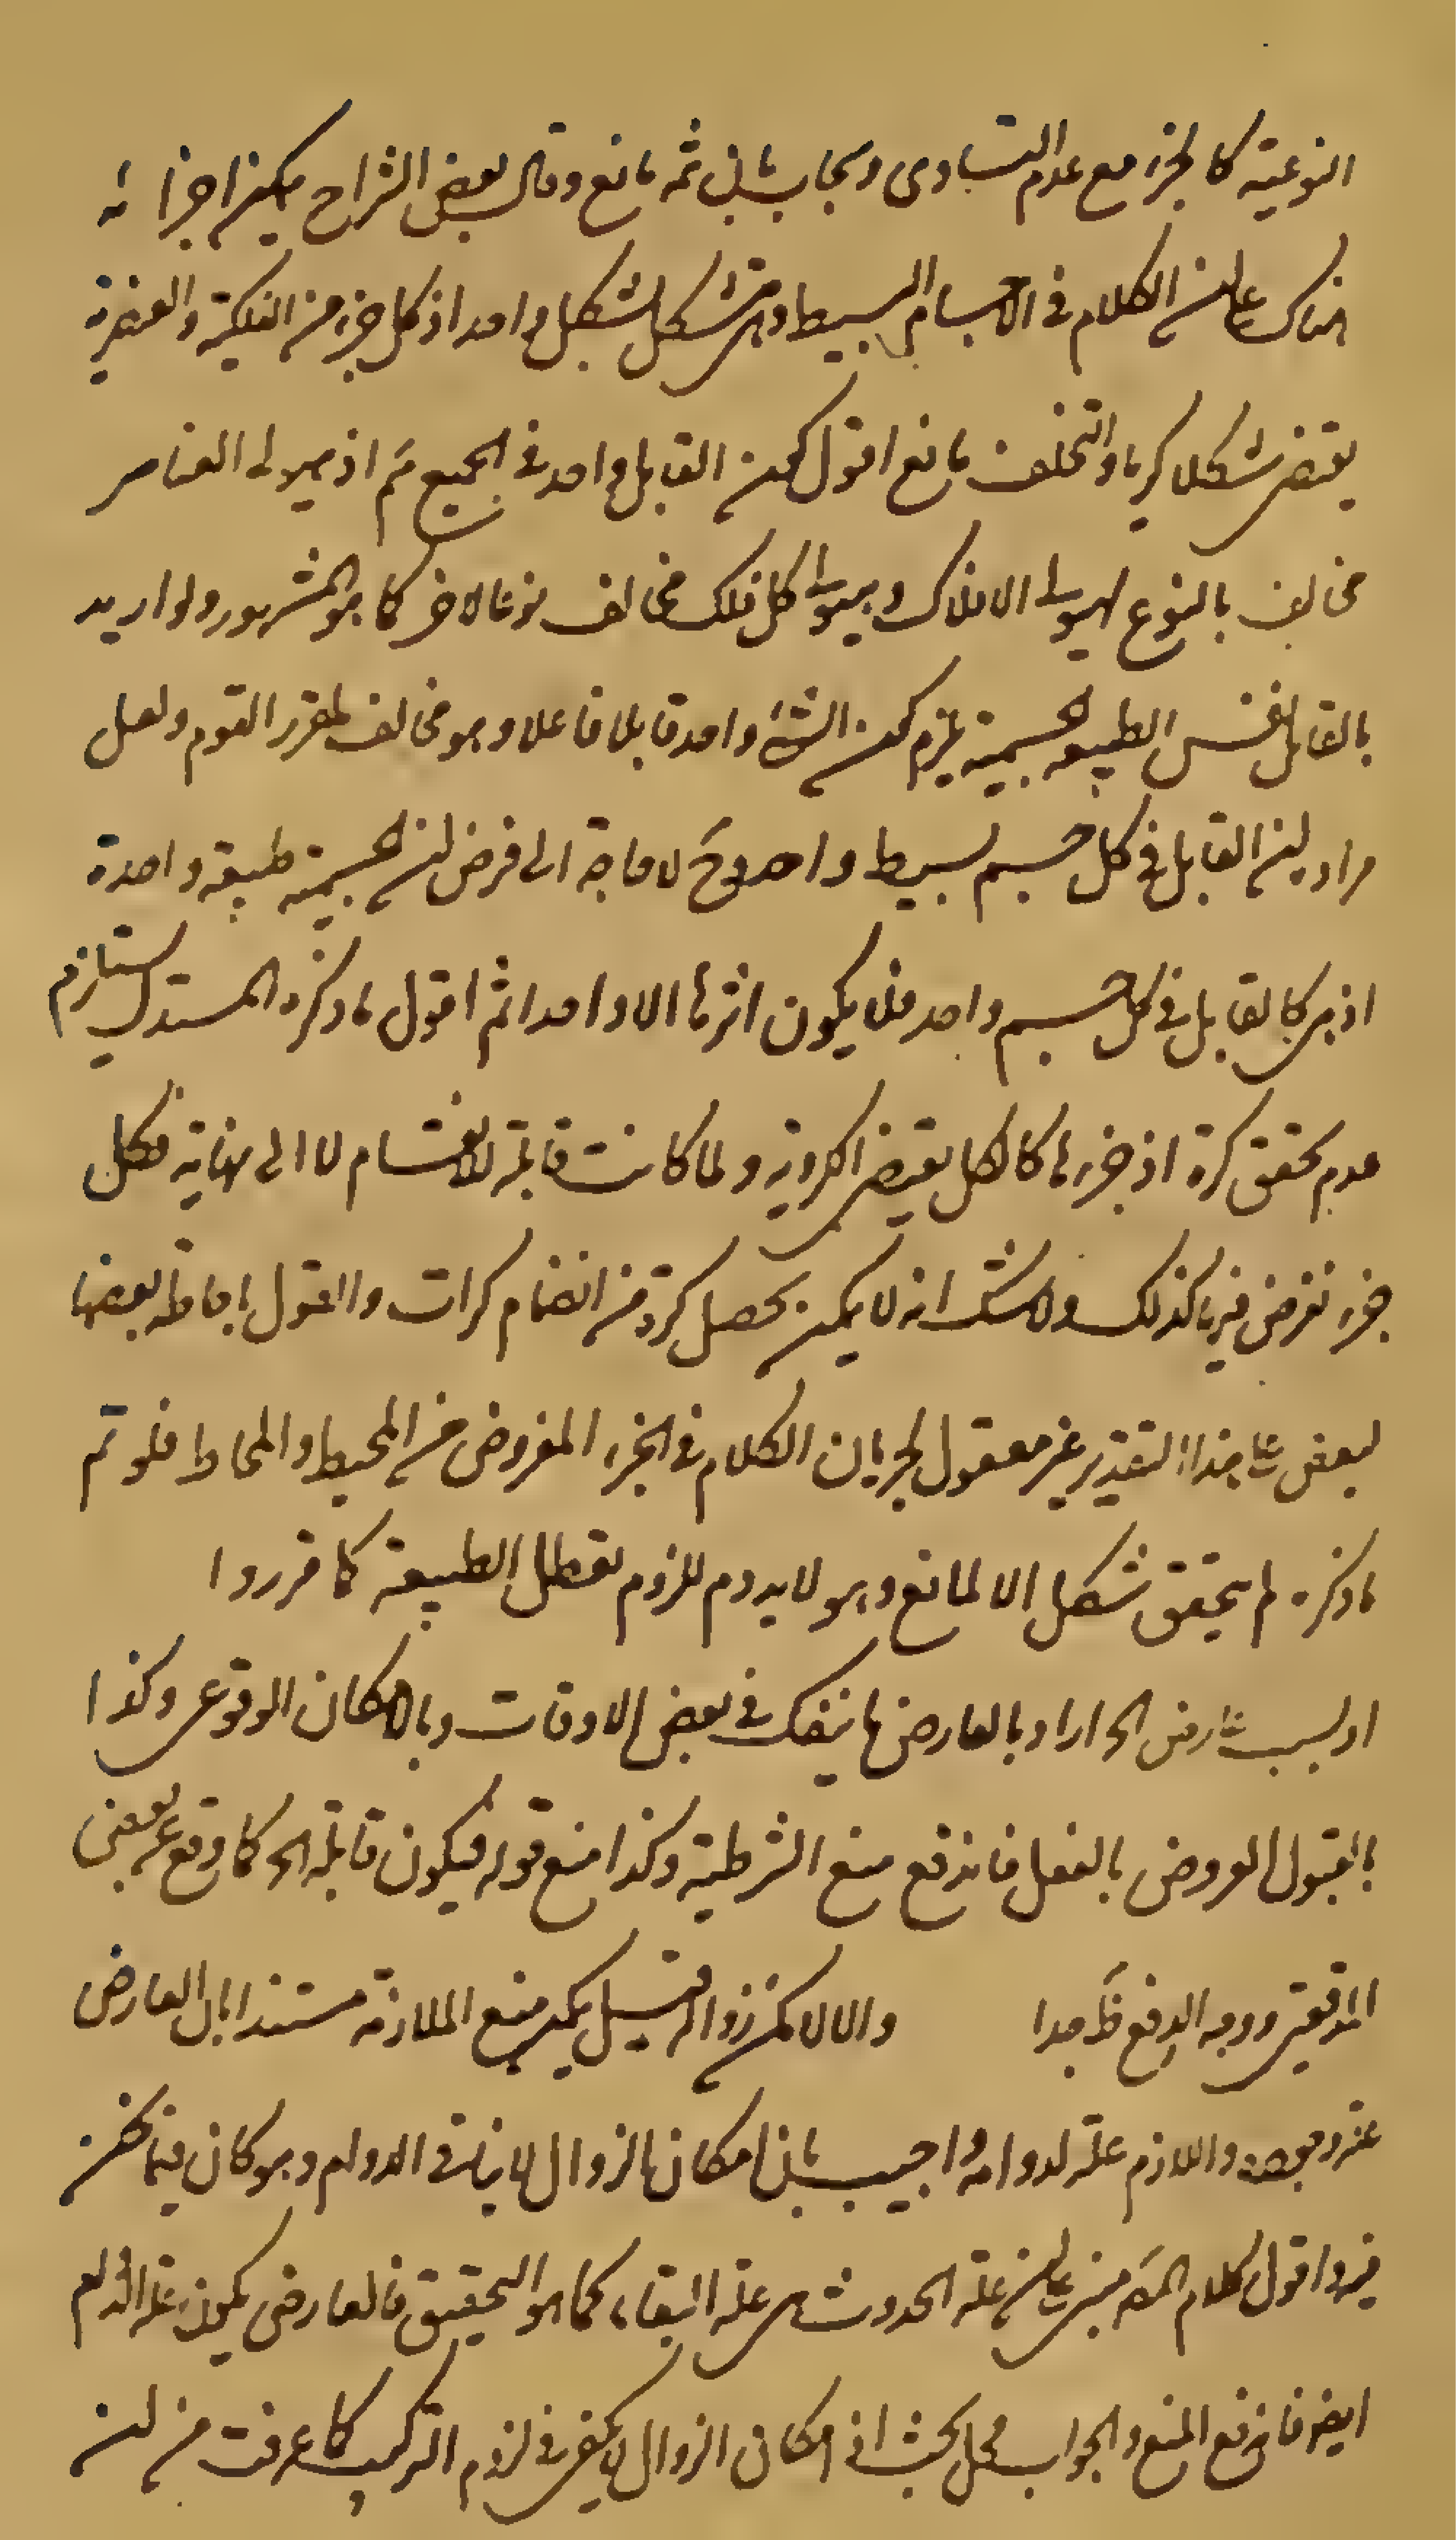 النوعية كالجزء مع عدم التساوى ويجاب بان ثمه مانع وقال بعض الشراح يمكن اجزائه
هناك على ان الكلام فى الاجسام البسيط وهى متشكل بشكل واحد اذ كل جزء من الفلكية والعنصرية
يقتضى شكلا كريا والتخلف لمانع اقول كون القابل واحد فى الجميع مَم اذ هيولى العناصر
مخالف بالنوع لهيولى الافلاك وهيولى كل فلك مخالف نوعا لاخر كما هو المشهور ولو اريد
بالقابل نفس الطبيعه الجسمية يلزم كون الشئ واحد قابلا فاعلا وهو مخالف لمقرر القوم ولعل
مراده ان القابل فى كل جسم بسيط واحد وحَ لا حاجة الى فرض ان الجسمية طبيعة واحدة
اذ هى كالقابل فى كل جسم واحد فلا يكون اثرها الا واحدا ثم اقول ما ذكره المستدل يستلزم
عدم تحقق كرة اذ جزءها كالكل يقتضى الكروية ولما كانت قابلة للانقسام لا الى نهاية فكل
جزء نفرض فيها كذلك ولا شك انه لا يمكن تحصل كرة من انضمام كرات والقول باحاطه بعضها
لبعض على هذا التقدير غير معقول لجريان الكلام فى الجزء المفروض من المحيط والمحاط فلو تم
ما ذكره لم يتحقق شكل الا لمانع وهو لا يدوم للزوم تعطل الطبيعة كما قرروا
او بسبب عارض الخ اراد بالعارض ما ينفك فى بعض الاوقات وبالامكان الوقوعى وكذا
بالقبول العروض بالفعل فاندفع منع الشرطية وكذا منع قوله فيكون قابلة الخ كما وقع عن بعض
المدققين ووجه الدفع ظَ جدا والا لامكن زواله قيل يمكن منع الملازمة مستندا بان العارض
عند وجوده واللازم علة لدوامه واجيب بان امكان الزوال لا ينافى الدوام وهو كان فيما نحن
فيه واقول كلام المصَ مبنى على ان علة الحدوث هى علة البقاء كما هو التحقيق فالعارض يكون علة الدوام
ايضا فاندفع المنع والجواب محل بحث اذ امكان الزوال لا يكفى فى لزوم التركيب كما عرفت من ان